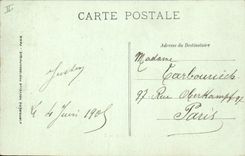 CARTE POSTALE
Adresse du Destinataire
Madame
Tarbouriech
97 Rue Oberkampf 97
Paris
Le 4 Juin 1905